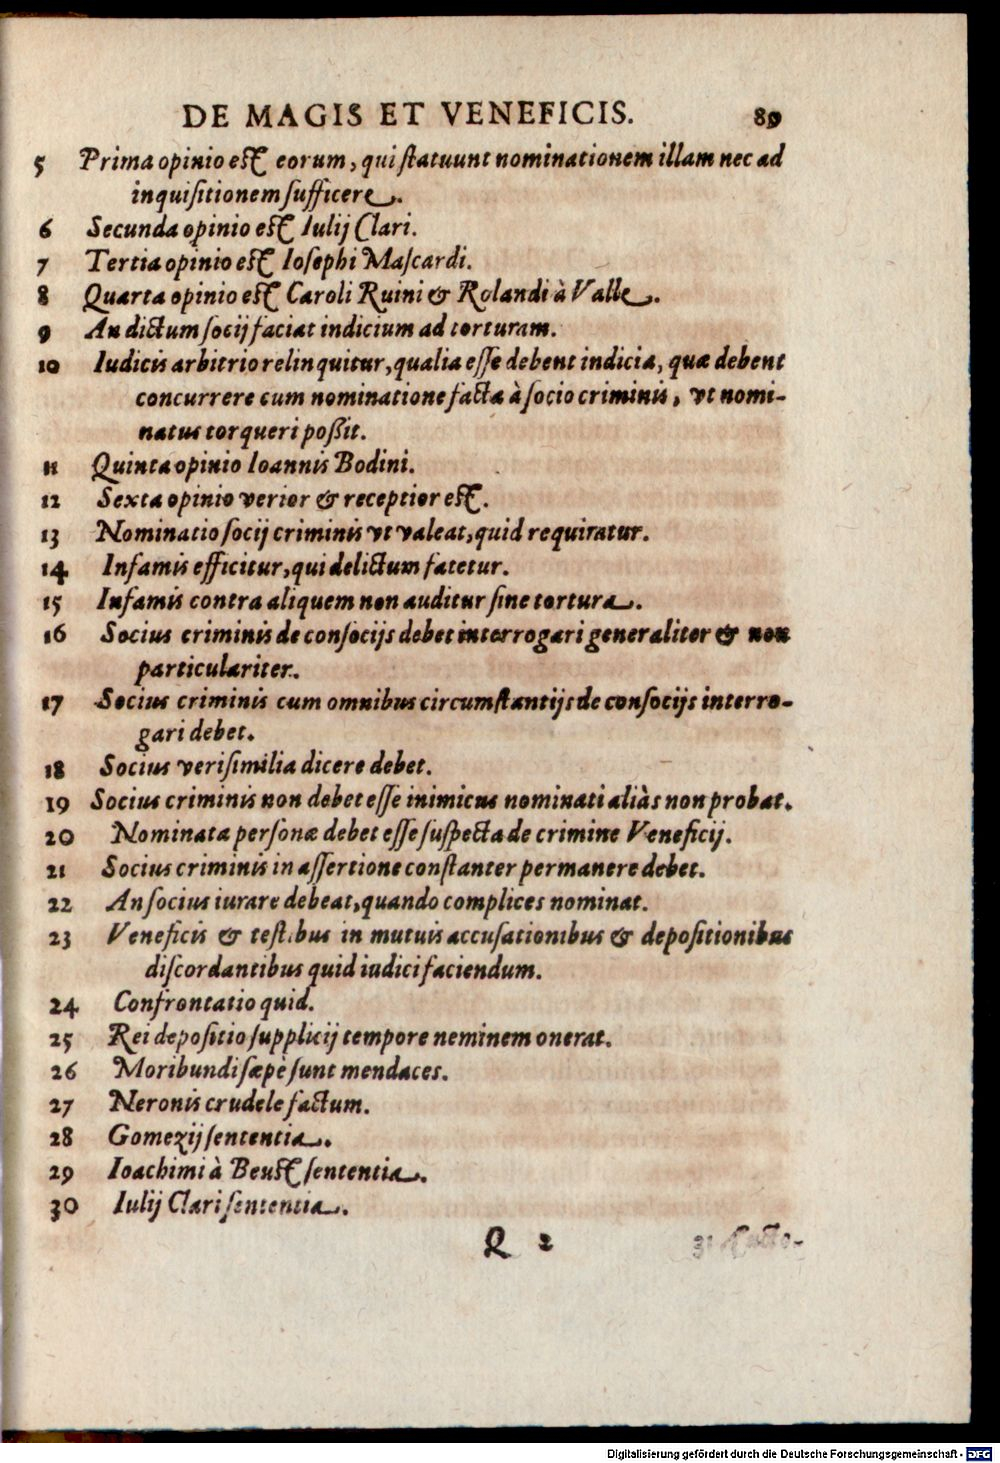 DE MAGIS ET VENEFICIS. 89
5 Prima opinio est eorum, qui ſtatuunt nominationem illam nec ad
inquiſitionem ſufficere.
6 Secunda opinio est Iulij Clari.
7 Tertia opinio est Ioſephi Maſcardi.
8 Quarta opinio est Caroli Ruini & Rolandi à Valle.
9 An dictum ſocij faciat indicium ad torturam.
10 Iudicis arbitrio relinquitur, qualia eſſe debent indicia, quæ debent
concurrere cum nominatione facta à ſocio criminis, vt nomi-
natus torqueri poßit.
11 Quinta opinio Ioannis Bodini.
12 Sexta opinio verior & receptior est.
13 Nominatio ſocij criminis vt valeat, quid requiratur.
14 Infamis efficitur, qui delictum fatetur.
15 Infamis contra aliquem non auditur ſine tortura.
16 Socius criminis de conſocijs debet interrogari generaliter & non
particulariter.
17 Socius criminis cum omnibus circumſtantijs de conſocijs interro-
gari debet.
18 Socius veriſimilia dicere debet.
19 Socius criminis non debet eſſe inimicus nominati aliàs non probat.
20 Nominata perſonæ debet eſſe ſuſpecta de crimine Veneficij.
21 Socius criminis in aſſertione conſtanter permanere debet.
22 An ſocius iurare debeat, quando complices nominat.
23 Veneficis & testibus in mutuis accuſationibus & depoſitionibus
diſcordantibus quid iudici faciendum.
24 Confrontatio quid.
25 Rei depoſitio ſupplicij tempore neminem onerat.
26 Moribundi ſæpè ſunt mendaces.
27 Neronis crudele factum.
28 Gomezij ſententia.
29 Ioachimi à Beust ſententia.
30 Iulij Clari ſententia.
Q 2 31
Digitalisierung gefördert durch die Deutsche Forschungsgemeinschaft - DFG